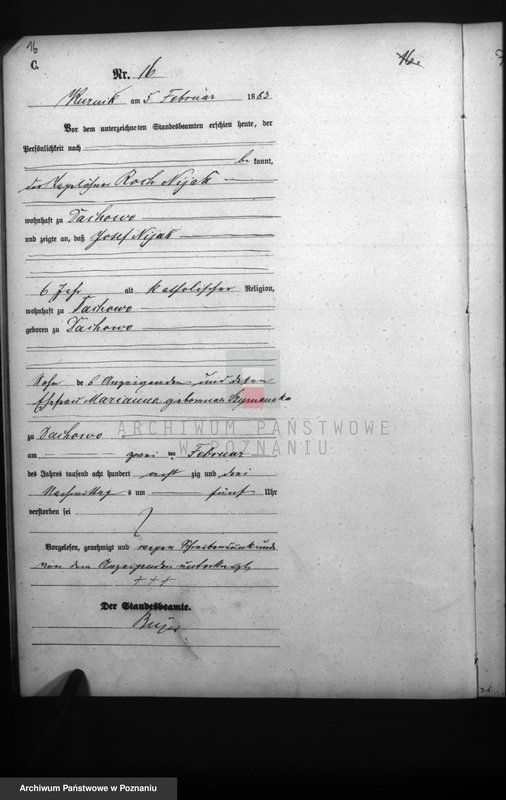 16
C.
Nr. 16
16.
Kurnik am 5 Februar 1883
Vor dem unterzeichneten Standesbeamten erschien heute, der
Persönlichkeit nach
be kannt,
der Roch Nijak
wohnhaft zu Dachowo
und zeigte an, daß Josef Nijak
6 Jahr alt katholischer Religion,
wohnhaft zu Dachowo
geboren zu Dachowo
Sohn des Anzeigenden, und dessen
Ehefrau Marianna geborenen Szymanska
zu Dachowo
am zwei ten Februar
des Jahres tausend acht hundert acht zig und drei
Nachmittag s um fünf Uhr
verstorben sei
Vorgelesen, genehmigt und wegen Schreibensunkunde
von dem Anzeigenden unterkreuzt
+ + +
Der Standesbeamte.
ARCHIWUM PAŃSTWOWE
W POZNANIU
Archiwum Państwowe w Poznaniu